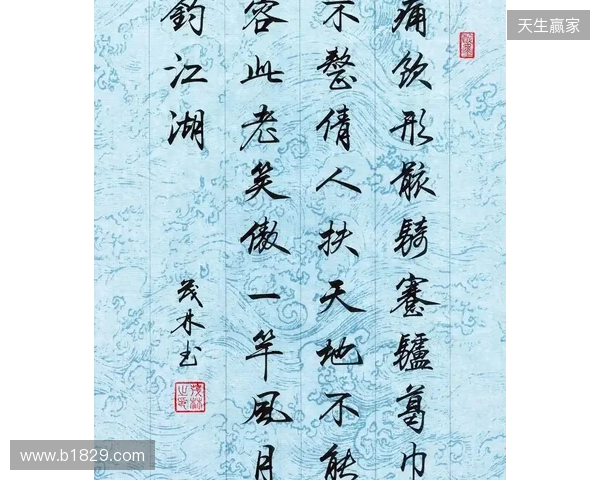 痛飲形骸騎蹇驢葛巾
不整倩人扶天地不能
容此老笑傲一竿風月
釣江湖
茂林书
天生赢家
www.b1829.com